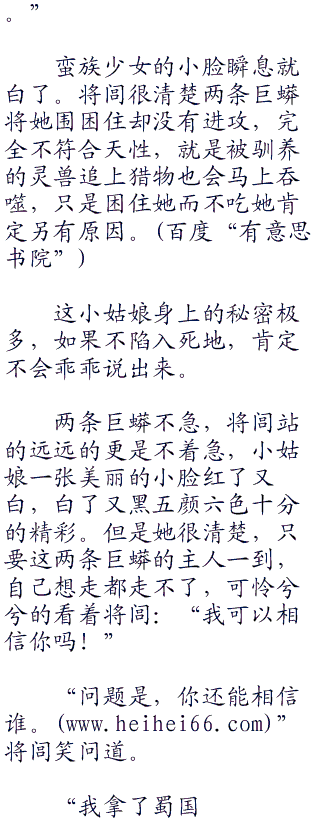 。”
蛮族少女的小脸瞬息就
白了。将闾很清楚两条巨蟒
将她围困住却没有进攻，完
全不符合天性，就是被驯养
的灵兽追上猎物也会马上吞
噬，只是困住她而不吃她肯
定另有原因。(百度“有意思
书院”)
这小姑娘身上的秘密极
多，如果不陷入死地，肯定
不会乖乖说出来。
两条巨蟒不急，将闾站
的远远的更是不着急，小姑
娘一张美丽的小脸红了又
白，白了又黑五颜六色十分
的精彩。但是她很清楚，只
要这两条巨蟒的主人一到，
自己想走都走不了，可怜兮
兮的看着将闾：“我可以相
信你吗！”
“问题是，你还能相信
谁。(www.heihei66.com)”
将闾笑问道。
“我拿了蜀国